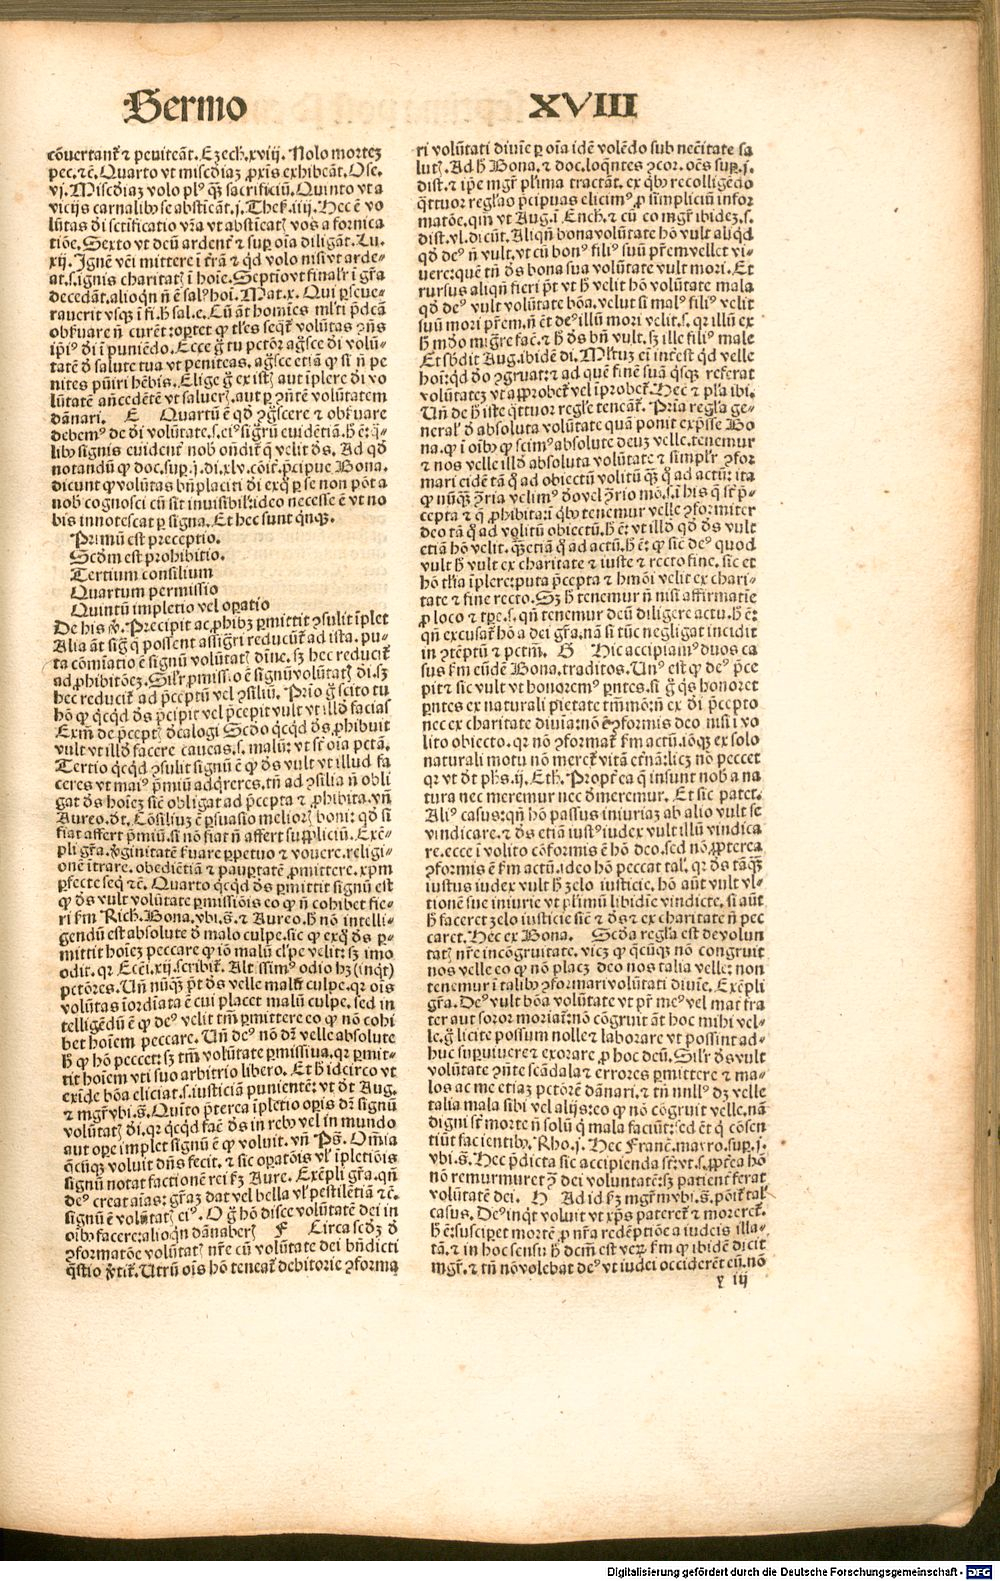 Sermo XVIII
cõuertant᷑ ⁊ peniteãt. Ezech. xviij. Nolo mortez
pec. ⁊c̃. Quarto vt miẜcdiaz ꝓxĩs exhibeãt. Ose.
vj. Miẜcdiaz volo plꝰ q̃ʒ sacrificiũ. Quinto vt a
vicijs carnalibꝰ se absticãt. j. Theẜ. iiij. Hec ẽ vo
lũtas dĩ sctificatio vr̃a vt absticatꝭ vos a fornica
tiõe. Sexto vt deũ ardent᷑ ⁊ suꝑ oĩa diligãt. Lu.
xij. Ignẽ vẽi mittere ĩ tr̃ã ⁊ qd volo nisi vt arde-
at. s. ignis charitatꝭ ĩ hoĩe. Septiovt finalr̃ ĩ gr̃a
decedãt. alioqñ ñ ẽ salꝰ hoĩ. Mat. x. Qui ꝑseue-
rauerit vsqʒ ĩ fi. h̃ sal. e. Eũ ãt homĩes ml̃ti p̃dcã
obẜuare ñ curẽt: oꝑtet ꝙ tl̃es seqr᷑ volũtas ꝯñs
ip̃iꝰ dĩ ĩ puniẽdo. Ecce ḡ tu pctõr agẜce dĩ volũ-
tatẽ ð salute tua vt peniteas. agẜce etiã ꝙ si ñ pe
nites pũiri hẽbis. Elige ḡ ex istꝭ aut ĩplere dĩ vo
lũtatẽ añcedẽtẽ vt salueꝭ. aut ꝑ ꝯñtẽ volũtatem
dãnari. E Quartũ ẽ qð ꝯgẜcere ⁊ obẜuare
debemꝰ de dĩ volũtate. s. eiꝰ sigr̃ũ euidẽtiã. h̃ ẽ: q̃-
libꝰ signis euident᷑ nobꝭ oñdit᷑ q̃ velit ðs. Ad qð
notandũ ꝙ doc. suꝑ. j. di. xlv. cõit᷑. p̃cipue Bona.
dicunt ꝙ volũtas bñplaciti dĩ exq̃ ꝑ se non põt a
nobꝭ cognosci cũ sit inuisibil̃: ideo necesse ẽ vt no
bis innotescat ꝑ signa. Et hec sunt q̃nqʒ.
Primũ est preceptio.
Scðm est prohibitio.
Tertium consilium
Quartum permissio
Quintũ impletio vel oꝑatio
De his v̓. Precipit ac ꝓhibʒ ꝑmittit ꝯsulit ĩplet
Alia ãt sig̃ q̃ possent assig̃ri reducũt᷑ ad ista. pu-
ta cõmĩatio ẽ signũ volũtatꝭ dĩne. sʒ hec reducit᷑
ad ꝓhibitõeʒ. Silr̃ ꝑmissio ẽ signũ volũtatꝭ dĩ. sʒ
hec reducit᷑ ad p̃ceptũ vel ꝯsiliũ. Prĩo ḡ scito tu
hõ ꝙ qcqd ðs p̃cipit vel p̃cepit vult vt illð facias
Exm̃ de p̃ceptꝭ ðcalogi Scðo qcqd ðs ꝓhibuit
vult vt illð facere caueas. s. malũ: vt st̃ oĩa pctã.
Tertio qcqd ꝯsulit signũ ẽ ꝙ ðs vult vt illud fa
ceres vt maiꝰ p̃miũ adqreres. tñ ad ꝯsilia ñ obli
gat ðs hoĩeʒ sic̃ obligat ad p̃cepta ⁊ ꝓhibita. vñ
Aureo. ðt. Cõsiliuʒ ẽ ꝑsuasio melioꝭ boni: qð si
fiat affert p̃miũ. si nõ fiat ñ affert suppliciũ. Exẽ-
pli gr̃a. v̓ginitatẽ ẜuare ꝑpetuo ⁊ vouere. religi-
onẽ ĩtrare. obediẽtiã ⁊ pauꝑtatẽ ꝓmittere. xp̃m
ꝑfecte seq̃ ⁊c̃. Quarto qcqd ðs ꝑmittit signũ est
ꝙ ðs vult voluntate ꝑmissiõis eo ꝙ ñ cohibet fie-
ri ẜm Rich. Bona. vbi. s̃. ⁊ Aureo. h̃ nõ intelli-
gendũ est absolute ð malo culpe. sic ꝙ exq̃ ðs ꝑ-
mittit hoĩeʒ peccare ꝙ iõ malũ cl̃pe velit: sʒ imo
odit. qr Ecẽi. xij. scribit᷑. Altissimꝰ odio hʒ (inqt)
pctõres. Uñ nũqʒ p̃t ðs velle malũ culpe. qr oĩs
volũtas iordĩata ẽ cui placet malũ culpe. sed in
telligẽdũ ẽ ꝙ deꝰ velit tm̃ ꝑmittere eo ꝙ nõ cohi
bet hoĩem peccare. Uñ deꝰ nõ dr̃ velle absolute
h̃ ꝙ hõ peccet: sʒ tm̃ volũtate ꝑmissiua. qr ꝑmit-
tit hoĩem vti suo arbitrio libero. Et h̃ idcirco vt
exĩde bõa eliciat. s. iusticiã punientẽ: vt ðt Aug.
⁊ mgr̃ vbi. s̃. Quĩto p̃terea ĩpletio oꝑis dr̃ signũ
volũtatꝭ dĩ. qr qcqd faẽ ðs in rebꝰ vel in mundo
aut oꝑe implet signũ ẽ ꝙ voluit. vñ Ps̃. Om̃ia
q̃cũqʒ voluit dñs fecit. ⁊ sic oꝑatõis vl̃ ĩpletiõis
signũ notat factionẽ rei ẜʒ Aure. Exẽpli gr̃a. qñ
deꝰ creat aĩas: gr̃aʒ dat vel bella vl̃ pestilẽtiã ⁊c̃.
signũ ẽ volũtatꝭ eiꝰ. O ḡ hõ disce volũtatẽ dei in
oĩbꝰ facere: alioqñ dãnabeꝭ F Circa scðʒ ð
ꝯformatõe volũtatꝭ nr̃e cũ volũtate dei bñdicti
q̃stio v̓tit᷑. Utrũ oĩs hõ teneat᷑ debitorie ꝯforma
ri volũtati diuĩe ꝑ oĩa idẽ volẽdo sub necẽitate sa
lutꝭ. Ad h̃ Bona. ⁊ doc. loq̃ntes ꝯcor. oẽs suꝑ. j.
dist. ⁊ ip̃e mgr̃ plr̃ima tractãt. ex q̃bꝰ recolligẽdo
q̃ttuor regl̃as p̃cipuas elicimꝰ ꝓ simpliciũ infor
matõe. qm̃ vt Aug. ĩ Ench. ⁊ cũ eo mgr̃ ibideʒ. s.
dist. vl. dicũt. Aliqñ bona volũtate hõ vult aliqd
qð deꝰ ñ vult. vt cũ bonꝰ filiꝰ suũ pr̃em vellet vi-
uere: quẽ tñ ðs bona sua volũtate vult mori. Et
rursus aliqñ fieri p̃t vt h̃ velit hõ volũtate mala
qð deꝰ vult volũtate bõa. velut si malꝰ filiꝰ velit
suũ mori pr̃em. ñ ẽt deꝰ illũ mori velit. s. qr illũ ex
h̃ mũdo migrare faẽ. ⁊ h̃ ðs bñ vult. sʒ ille filiꝰ male
Et sbdit Aug. ibidẽ di. Ml̃tuʒ eĩ int̃est qd velle
hoĩ: qd ðo ꝯgruat: ⁊ ad quẽ finẽ suã q̃sqʒ referat
volũtateʒ vt approbet᷑ vel iprobet᷑. Hec ⁊ pl̃a ibi.
Uñ de h̃ iste q̃ttuor regl̃e teneãt᷑. Pria regl̃a ge-
neral̃ ð absoluta volũtate quã ponit exp̃sse Bo
na. ꝙ ĩ oĩbꝰ ꝙ scimꝰ absolute deuʒ velle. tenemur
⁊ nos velle illð absoluta volũtate ⁊ simplr̃ ꝯfor
mari eidẽ tã q̃ ad obiectũ volitũ q̃ʒ q̃ ad actũ: ita
ꝙ nũqʒ ꝯr̃ia velimꝰ ðo vel ꝯr̃io mõ. s. ĩ his q̃ st̃ p̃-
cepta ⁊ q̃ ꝓhibita: ĩ q̃bꝰ tenemur velle ꝯformiter
deo tã q̃ ad volitũ obiectũ. h̃ ẽ: vt illð qð ðs vult
etiã hõ velit. q̃ʒ etiã q̃ ad actũ. h̃ ẽ: ꝙ sic̃ deꝰ quod
vult h̃ vult ex charitate ⁊ iuste ⁊ recto fine. sic et
hõ tl̃ia ĩplere: puta p̃cepta ⁊ hm̃oi velit ex chari-
tate ⁊ fine recto. Sʒ h̃ tenemur ñ nisi affirmatie
ꝓ loco ⁊ tꝑe. s. qñ tenemur deũ diligere actu. h̃ ẽ:
qñ excusat᷑ hõ a dei gr̃a. nã si tũc negligat incidit
in ꝯtẽptũ ⁊ pctm̃. G Hic accipiamꝰ duos ca
sus ẜm eũdẽ Bona. traditos. Unꝰ est ꝙ deꝰ p̃ce
pit: ⁊ sic vult vt honoremꝰ ꝑntes. si ḡ q̃s honoret
ꝑntes ex naturali pietate tm̃mõ: ñ ex dĩ p̃cepto
nec ex charitate diuĩa: nõ ẽ ꝯformis deo nisi ĩ vo
lito obiecto. qr nõ ꝯformat᷑ ẜm actũ. iõqʒ ex solo
naturali motu nõ meret᷑ vitã etñã: licʒ nõ peccet
qr vt ðt phs. ij. Eth. Propt̃ea q̃ insunt nobꝭ a na
tura nec meremur nec ðmeremur. Et sic patet.
Aliꝰ casus: qñ hõ passus iniuriaʒ ab alio vult se
vindicare. ⁊ ðs etiã iustꝰ iudex vult illũ vindica
re. ecce ĩ volito cõformis ẽ hõ deo. sed nõ ꝓpterea
ꝯformis ẽ ẜm actũ. ideo hõ peccat tal̃. qr ðs tãqʒ
iustus iudex vult h̃ zelo iusticie. hõ aũt vult vl-
tionẽ sue iniurie vt plr̃imũ libidĩe vindicte. si aũt
h̃ faceret zelo iusticie sic̃ ⁊ ðs ⁊ ex charitate ñ pec
caret. Hec ex Bona. Scða regl̃a est de volun
tatꝭ nr̃e incõgruitate. viczꝭ ꝙ q̃cũqʒ nõ congruit
nos velle eo ꝙ nõ placʒ deo nos talia velle: non
tenemur ĩ talibꝰ ꝯformari volũtati diuĩe. Exẽpli
gr̃a. Deꝰ vult bõa volũtate vt pr̃ meꝰ vel mat̃ fra
ter aut soror moriat᷑: nõ cõgruit ãt hoc mihi vel-
le. ḡ licite possum nolle ⁊ laborare vt possint ad-
huc suꝑuiuere ⁊ exorare ꝓ hoc deũ. Silr̃ ðs vult
volũtate ꝯñte scãdala ⁊ errores ꝑmittere ⁊ ma-
los ac me etiaʒ pctõrẽ dãnari. ⁊ tñ nullꝰ dʒ velle
talia mala sibi vel alijs: eo ꝙ nõ cõgruit velle. nã
digni st̃ morte ñ solũ q̃ mala faciũt: sed ẽt q̃ cõsen
tiũt facientibꝰ. Rho. j. Hec Franẽ. mayro. suꝑ. j.
vbi. s̃. Hec p̃dicta sic accipienda st̃: vt. s. ꝓpt̃ea hõ
nõ remurmuret ꝯ̃ dei voluntatẽ: sʒ patient᷑ ferat
volũtatẽ dei. H Ad id ẜʒ mgr̃m vbi. s̃. põit᷑ tal̃
casus. Deꝰ inqt voluit vt xp̃s pateret᷑ ⁊ moreret᷑.
h̃ ẽ: susciꝑet mortẽ ꝓ nr̃a redẽptiõe a iudeis illa-
tã. ⁊ in hoc sensu h̃ dcm̃ est verꝝ ẜm ꝙ ibidẽ dicit
mgr̃. ⁊ tñ nõ volebat deꝰ vt iudei occiderẽt eũ. nõ
x iij
Digitalisierung gefördert durch die Deutsche Forschungsgemeinschaft - DFG